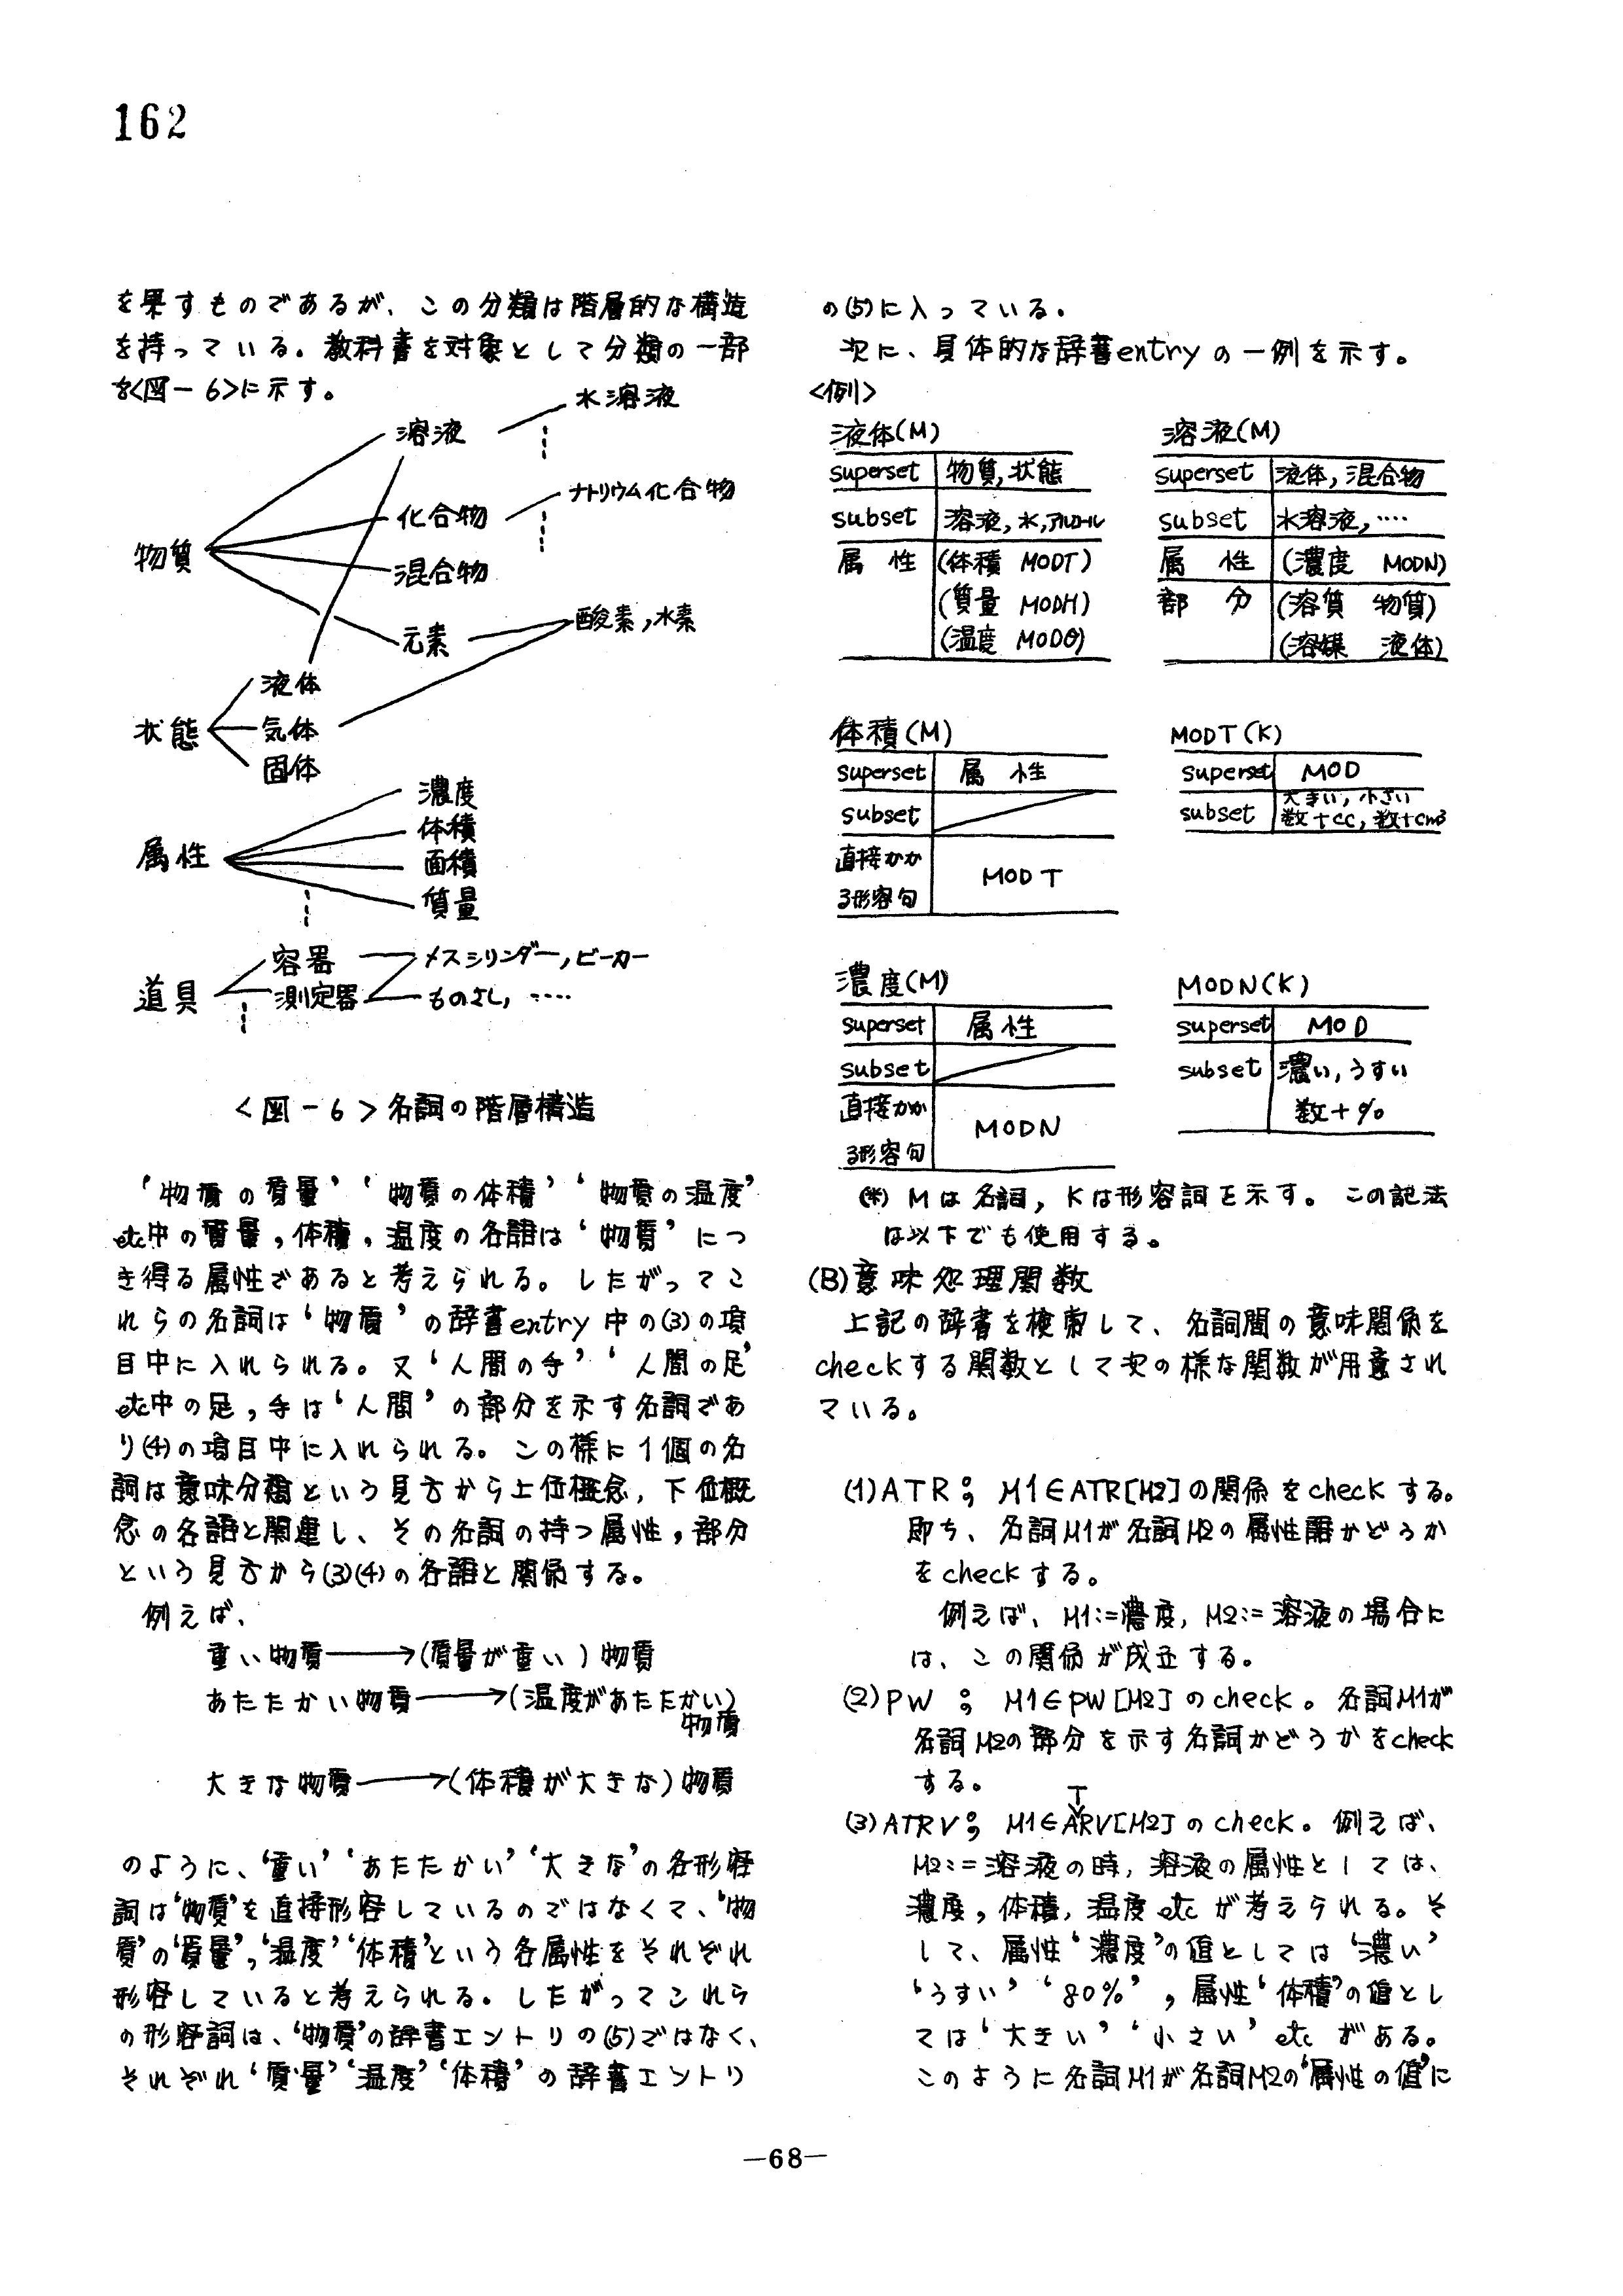 162
を果すものであるが、この分類は階層的な構造
を持っている。教科書を対象として分類の一部
を<図-6>に示す。
水溶液
溶液
ナトリウム化合物
化合物
物質
混合物
酸素,水素
元素
液体
状態
気体
固体
濃度
体積
属性
面積
質量
容器
メスシリンダー,ビーカー
道具
測定器
ものさし, ‥‥
<図-6>名詞の階層構造
‘物質の質量’‘物質の体積’‘物質の温度’
etc中の質量,体積,温度の各語は‘物質’につ
き得る属性であると考えられる。したがってこ
れらの名詞は‘物質’の辞書entry中の(3)の項
目中に入れられる。又‘人間の手’‘人間の足’
etc中の足,手は‘人間’の部分を示す名詞であ
り(4)の項目中に入れられる。この様に1個の名
詞は意味分類という見方から上位概念,下位概
念の各語と関連し、その名詞の持つ属性,部分
という見方から(3)(4)の各語と関係する。
例えば、
重い物質⟶(質量が重い)物質
あたたかい物質⟶(温度があたたかい)
物質
大きな物質⟶(体積が大きな)物質
のように、‘重い’‘あたたかい’‘大きな’の各形容
詞は‘物質’を直接形容しているのではなくて、‘物
質’の‘質量’,‘温度’‘体積’という各属性をそれぞれ
形容していると考えられる。したがってこれら
の形容詞は、‘物質’の辞書エントリの(5)ではなく、
それぞれ‘質量’‘温度’‘体積’の辞書エントリ
の(5)に入っている。
次に、具体的な辞書entryの一例を示す。
<例>
液体(M)
superset 物質,状態
subset 溶液,水,アルコール
属性 (体積 MODT)
(質量 MODH)
(温度 MODθ)
溶液(M)
superset 液体,混合物
subset 水溶液,‥‥
属性 (濃度 MODN)
部分 (溶質 物質)
(溶媒 液体)
体積(M)
superset 属性
subset
直接かか
る形容句 MODT
MODT(K)
superset MOD
subset 大きい,小さい
数+cc,数+cm³
濃度(M)
superset 属性
subset
直接かか
る形容句 MODN
MODN(K)
superset MOD
subset 濃い,うすい
数+%
(*) Mは名詞,Kは形容詞を示す。この記法
は以下でも使用する。
(B)意味処理関数
上記の辞書を検索して、名詞間の意味関係を
checkする関数として次の様な関数が用意され
ている。
(1)ATR; M1∈ATR[M2]の関係をcheckする。
即ち、名詞M1が名詞M2の属性語かどうか
をcheckする。
例えば、M1:=濃度,M2:=溶液の場合に
は、この関係が成立する。
(2)PW ; M1∈PW[M2]のcheck。名詞M1が
名詞M2の部分を示す名詞かどうかをcheck
する。
T
(3)ATRV; M1∈ARV[M2]のcheck。例えば、
M2:=溶液の時,溶液の属性としては、
濃度,体積,温度etcが考えられる。そ
して、属性‘濃度’の値としては‘濃い’
‘うすい’‘80%’,属性‘体積’の値とし
ては‘大きい’‘小さい’etcがある。
このように名詞M1が名詞M2の‘属性の値’に
—68—